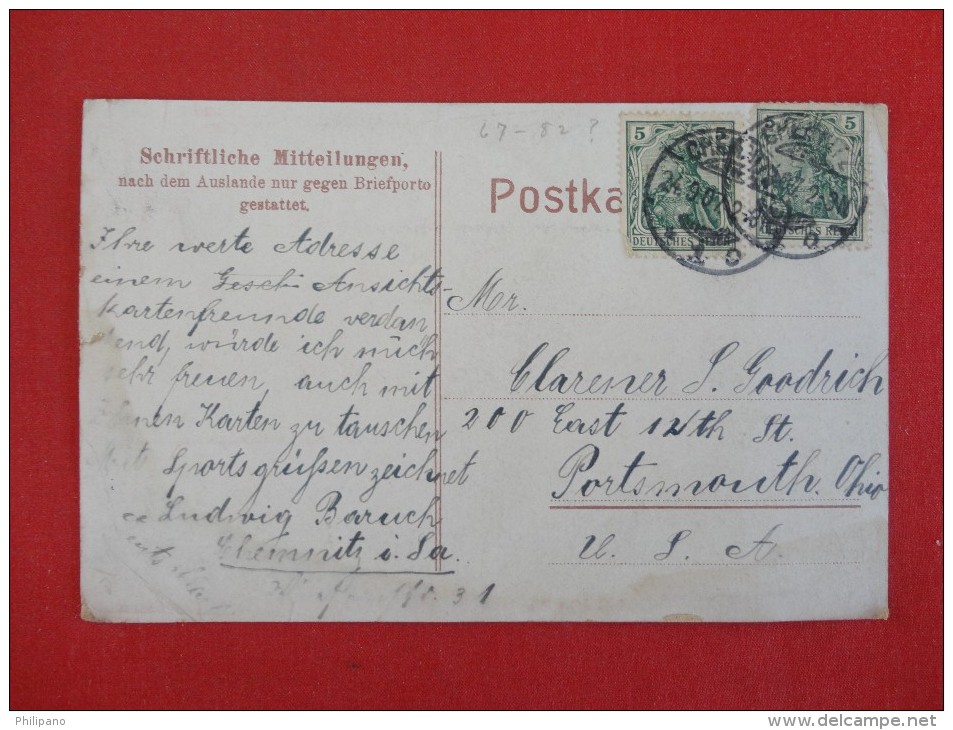 67-82 ?
Schriftliche Mitteilungen,
nach dem Auslande nur gegen Briefporto
gestattet.
Postka
5
DEUTSCHES REICH
5
DEUTSCHES REICH
CHEMNITZ
24.9.07
Ihre werte Adresse
einem Geschi Ansichts-
kartenfreunde verdan
kend, würde ich mich
sehr freuen, auch mit
Ihnen Karten zu tauschen
Mit Sportsgrüßen zeichnet
Ludwig Baruch
Chemnitz i. Sa.
31
Mr.
Clarener S. Goodrich
200 East 12th St.
Portsmouth. Ohio
U. S. A.
Philipano
delcampe.net